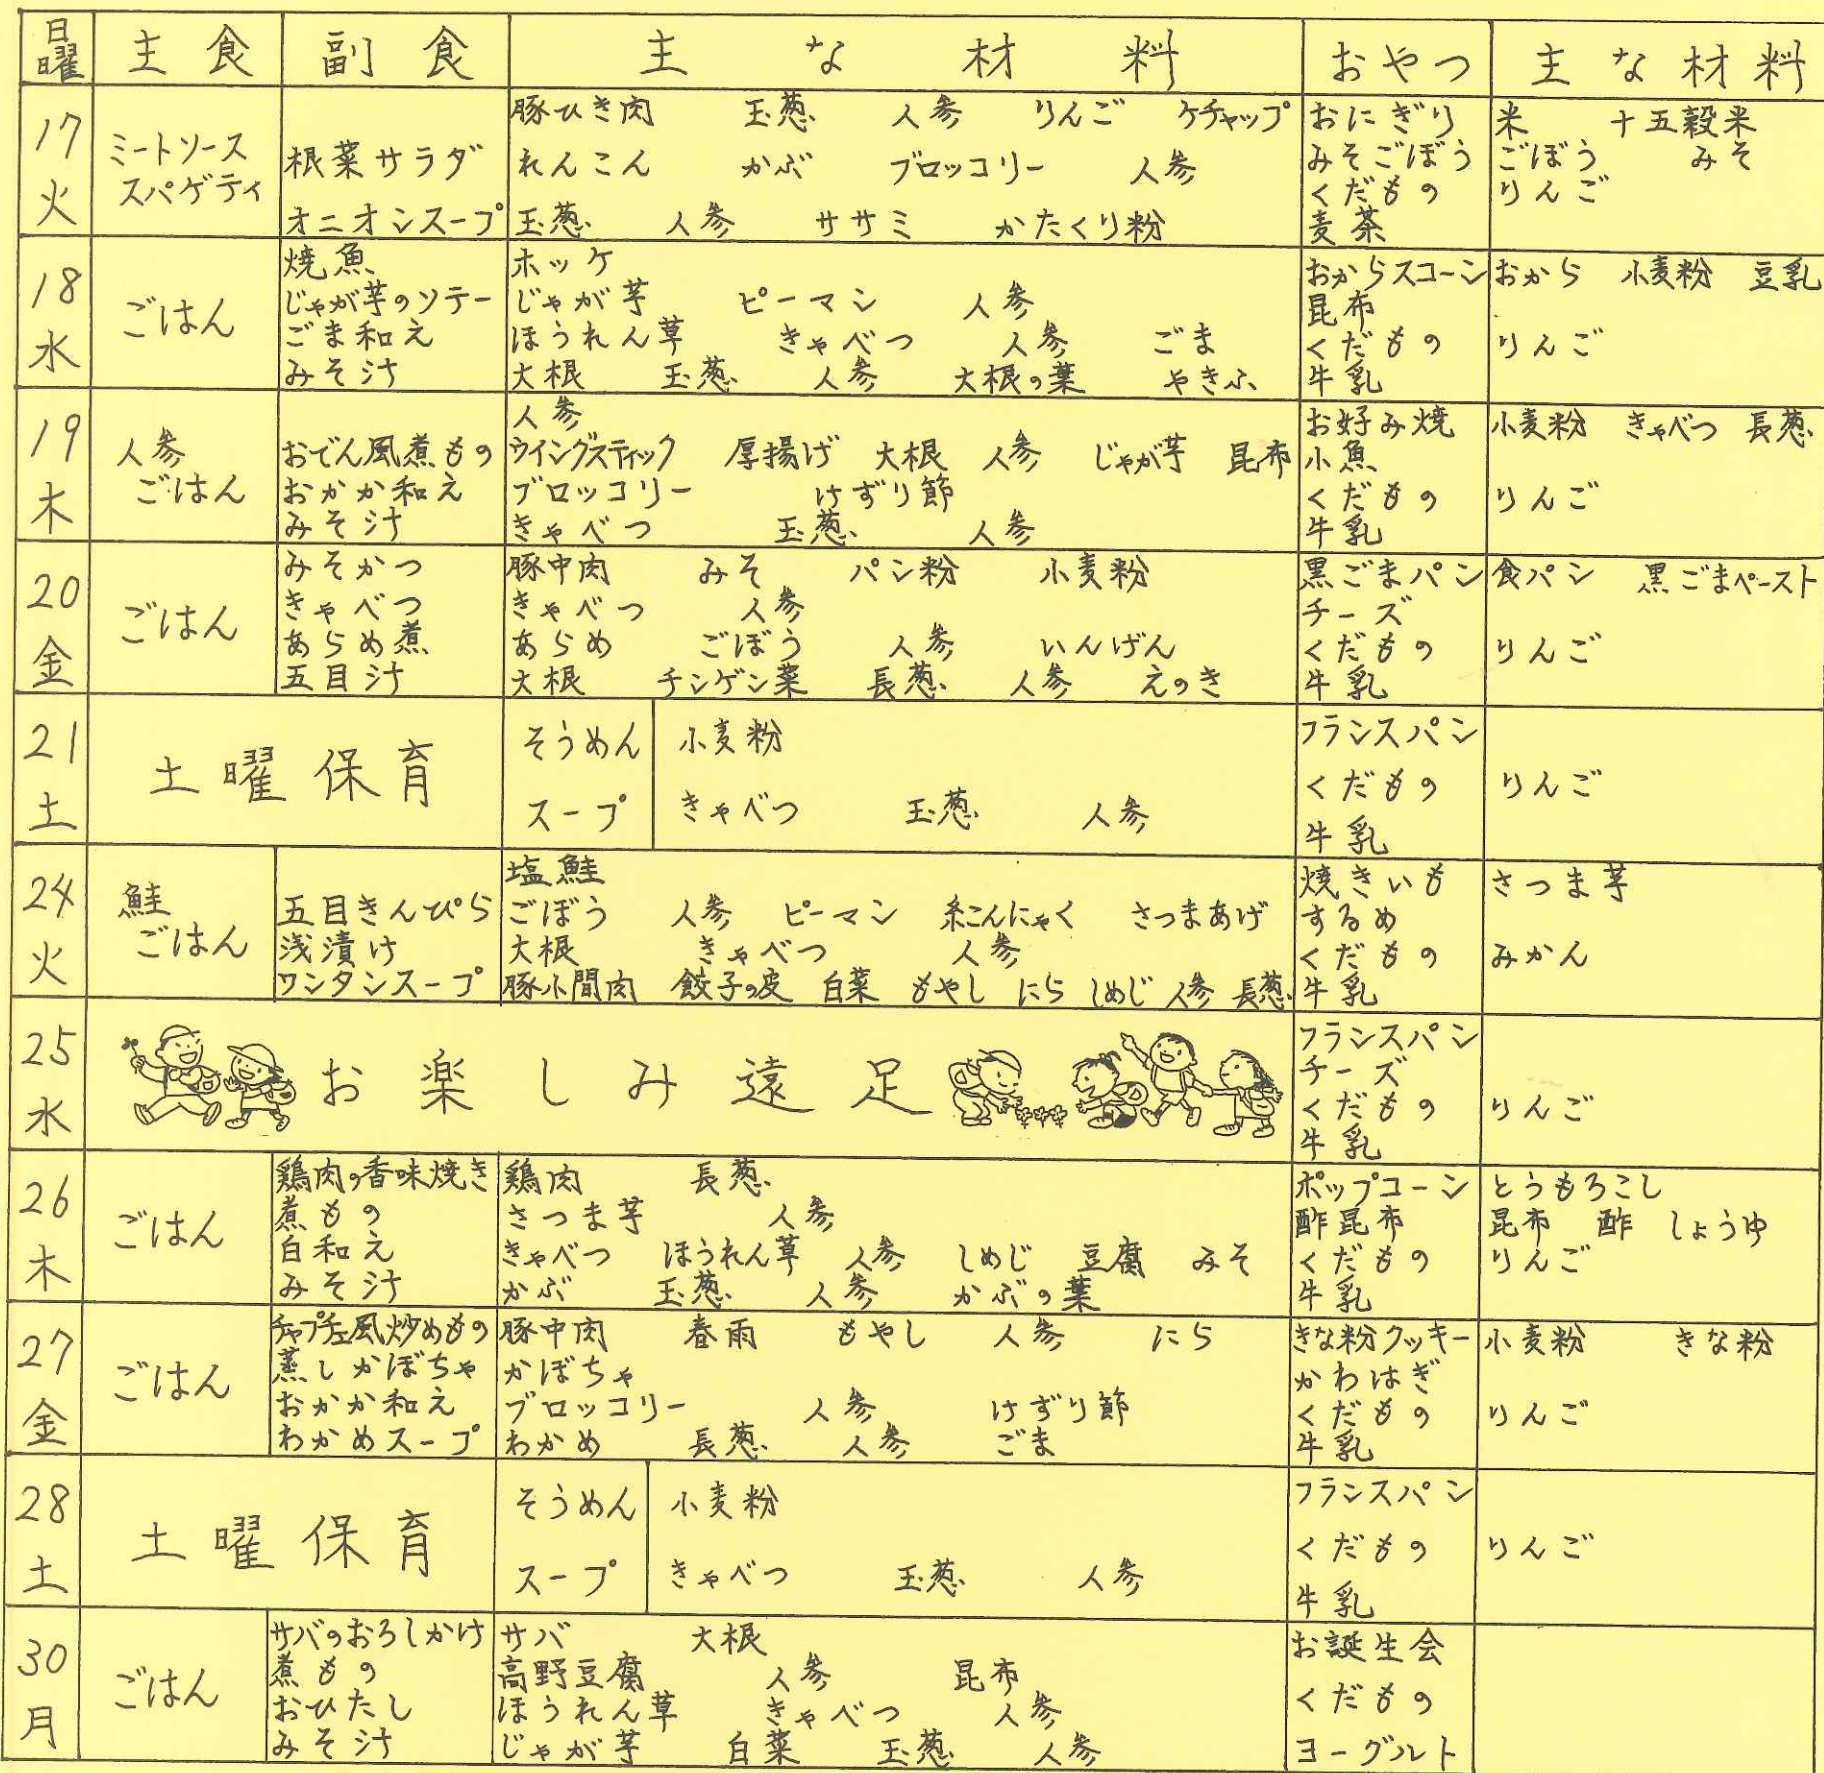 日曜 主食 副食 主な材料 おやつ 主な材料
17 火
ミートソース
スパゲティ
根菜サラダ
オニオンスープ
豚ひき肉 玉葱 人参 りんご ケチャップ
れんこん かぶ ブロッコリー 人参
玉葱 人参 ササミ かたくり粉
おにぎり
みそごぼう
くだもの
麦茶
米 十五穀米
ごぼう みそ
りんご
18 水
ごはん
焼魚
じゃが芋のソテー
ごま和え
みそ汁
ホッケ
じゃが芋 ピーマン 人参
ほうれん草 きゃべつ 人参 ごま
大根 玉葱 人参 大根の葉 やきふ
おからスコーン
昆布
くだもの
牛乳
おから 小麦粉 豆乳
りんご
19 木
人参
ごはん
おでん風煮もの
おかか和え
みそ汁
人参
ウイングスティック 厚揚げ 大根 人参 じゃが芋 昆布
ブロッコリー けずり節
きゃべつ 玉葱 人参
お好み焼
小魚
くだもの
牛乳
小麦粉 きゃべつ 長葱
りんご
20 金
ごはん
みそかつ
きゃべつ
あらめ煮
五目汁
豚中肉 みそ パン粉 小麦粉
きゃべつ 人参
あらめ ごぼう 人参 いんげん
大根 チンゲン菜 長葱 人参 えのき
黒ごまパン
チーズ
くだもの
牛乳
食パン 黒ごまペースト
りんご
21 土
土曜保育
そうめん
スープ
小麦粉
きゃべつ 玉葱 人参
フランスパン
くだもの
牛乳
りんご
24 火
鮭
ごはん
五目きんぴら
浅漬け
ワンタンスープ
塩鮭
ごぼう 人参 ピーマン 糸こんにゃく さつまあげ
大根 きゃべつ 人参
豚小間肉 餃子の皮 白菜 もやし にら しめじ 人参 長葱
焼きいも
するめ
くだもの
牛乳
さつま芋
みかん
25 水
お楽しみ遠足
フランスパン
チーズ
くだもの
牛乳
りんご
26 木
ごはん
鶏肉の香味焼き
煮もの
白和え
みそ汁
鶏肉 長葱
さつま芋 人参
きゃべつ ほうれん草 人参 しめじ 豆腐 みそ
かぶ 玉葱 人参 かぶの葉
ポップコーン
酢昆布
くだもの
牛乳
とうもろこし
昆布 酢 しょうゆ
りんご
27 金
ごはん
チャプチェ風炒めもの
蒸しかぼちゃ
おかか和え
わかめスープ
豚中肉 春雨 もやし 人参 にら
かぼちゃ
ブロッコリー 人参 けずり節
わかめ 長葱 人参 ごま
きな粉クッキー
かわはぎ
くだもの
牛乳
小麦粉 きな粉
りんご
28 土
土曜保育
そうめん
スープ
小麦粉
きゃべつ 玉葱 人参
フランスパン
くだもの
牛乳
りんご
30 月
ごはん
サバのおろしかけ
煮もの
おひたし
みそ汁
サバ 大根
高野豆腐 人参 昆布
ほうれん草 きゃべつ 人参
じゃが芋 白菜 玉葱 人参
お誕生会
くだもの
ヨーグルト